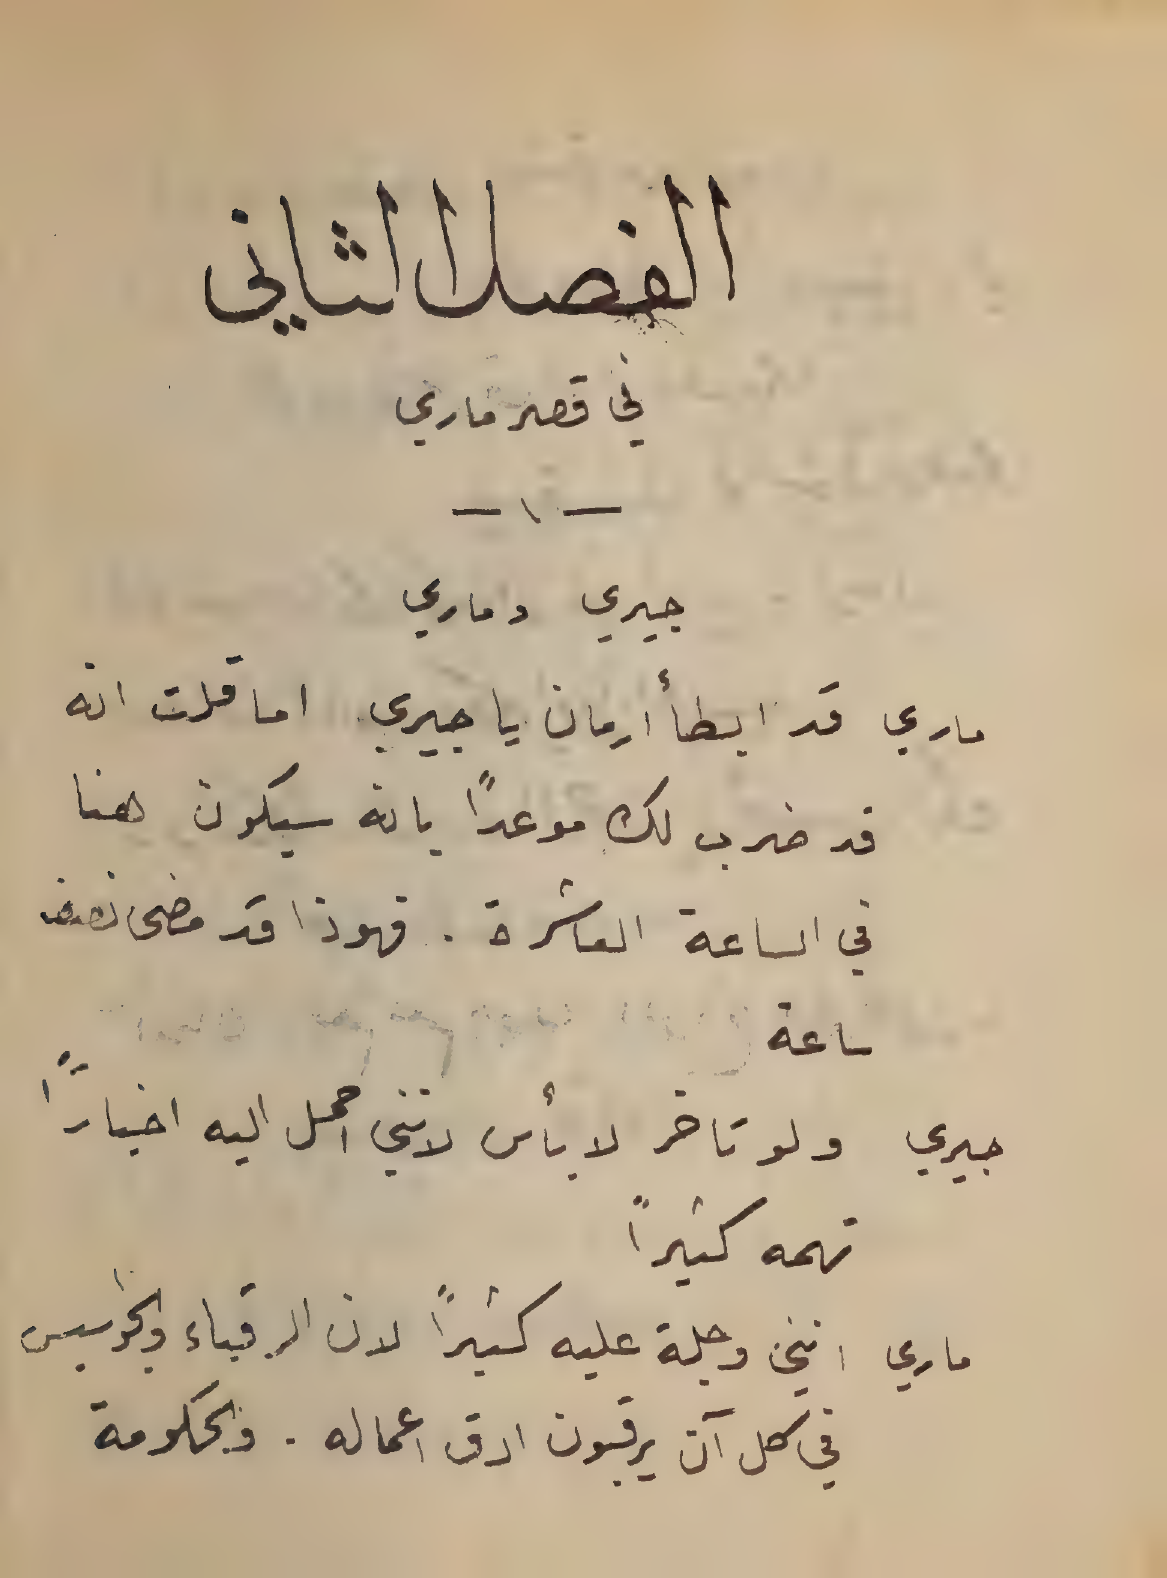 الفصل الثاني
في قصر ماري
— ١ —
جيري و ماري
ماري قد ابطأ ارمان يا جيري. اما قلت انه
قد ضرب لك موعدًا بانه سيكون هنا
في الساعة العاشرة . فهوذا قد مضى نصف
ساعة
جيري ولو تاخر لا بأس لانني احمل اليه اخبارًا
تهمه كثيرًا
ماري انني وجلة عليه كثيرًا لان الرقباء والجواسيس
في كل آن يرقبون ادق اعماله . والحكومة